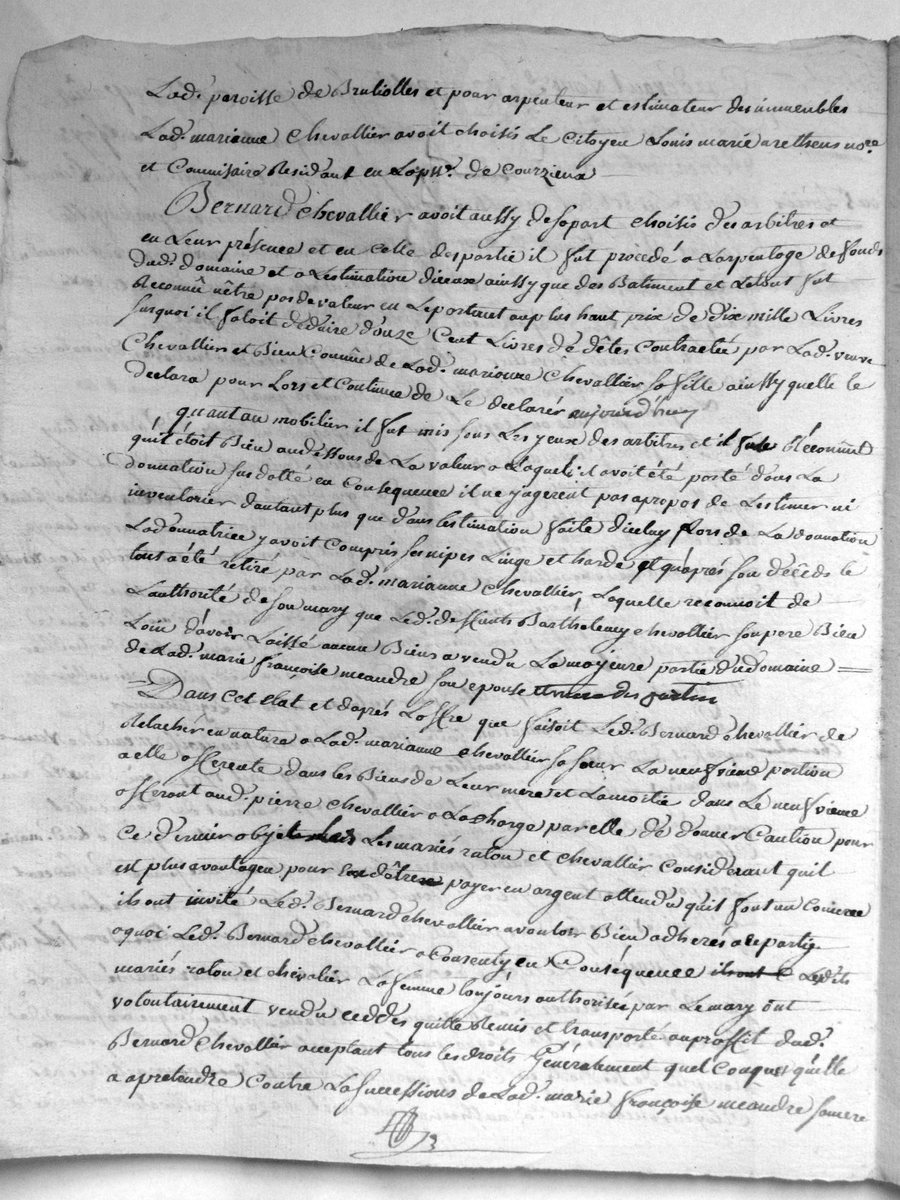 Lad. paroisse de Brulioles et pour arpenteur et estimateur des immeubles
Lad. marianne Chevallier avoit choisis Le Citoyen Louis marie arethens nore
et Commisaire Residant en La psse. de Courzieux
Bernard Chevallier avoit aussy desapart choisis des arbitres et
en Leur présence et en Celle des partie il fut procédé a Larpentage de fonds
dud. domaine et a Lestimation diceux ainssy que des Batiment et Letout fut
Reconnû nêtre pas de valeur en Le portant au plus haut prix de dix mille Livres
sur quoi il faloit déduire douze Cent Livres de dêtes Contractée par Lad. veuve
Chevallier et Bien Connûe de Lad. marianne Chevallier sa fille ainssy quelle le
declara pour Lors et Continue de Le declarér aujourd'huy
quant au mobilier il fut mis sous Les yeux des arbitres et il fut Réconnût
quil étoit Bien au dessous de La valeur a Laquelle il avoit été porté dans La
donnation sus datté en Consequence il ne jugerent pas apropos de Lestimer ni
inventorier dautant plus que dans Lestimation faite diceluy Lors de La donnation
La donnatrice y avoit Compris ses nipes Linge et harde et quaprés son décéds le
tout a été retiré par Lad. marianne Chevallier, Laquelle reconnoit de
Lauthorité de son mary que Led. deffunt Barthelemy chevallier son pere Bien
Loin d'avoir Laissé aucun Biens a vendu La moyeure partie du domaine
de Lad. marie françoise meandre son epouse
Dans Cet Etat et daprés Loffre que faisoit Led. Bernard chevallier de
Relachér en nature a Lad. marianne chevallier sa sœur La neufvieme portion
a elle afferente dans les Biens de Leur mere et La moitié dans Le neufvieme
afferant aud. pierre Chevallier a La charge par elle de donner Caution pour
Ce dernier objet Les mariés raton et chevallier Considerant quil
est plus avantageu pour dêtre payer en argent attendu quil font un Comerce
ils ont invité Led. Bernard chevallier a vouloir Bien adherés a Ce partis
a quoi Led. Bernard chevallier a Consenty en Conséquence Lesdits
mariés raton et chevalier La femme toujours authorisée par Le mary ont
volontairement vendu ceddés quitte Remis et transporté au proffit dud.
Bernard Chevallier acceptant tous les droits Généralement quelconques quelle
a a pretendre Contre La successions de Lad. marie françoise meandre sa mere
3